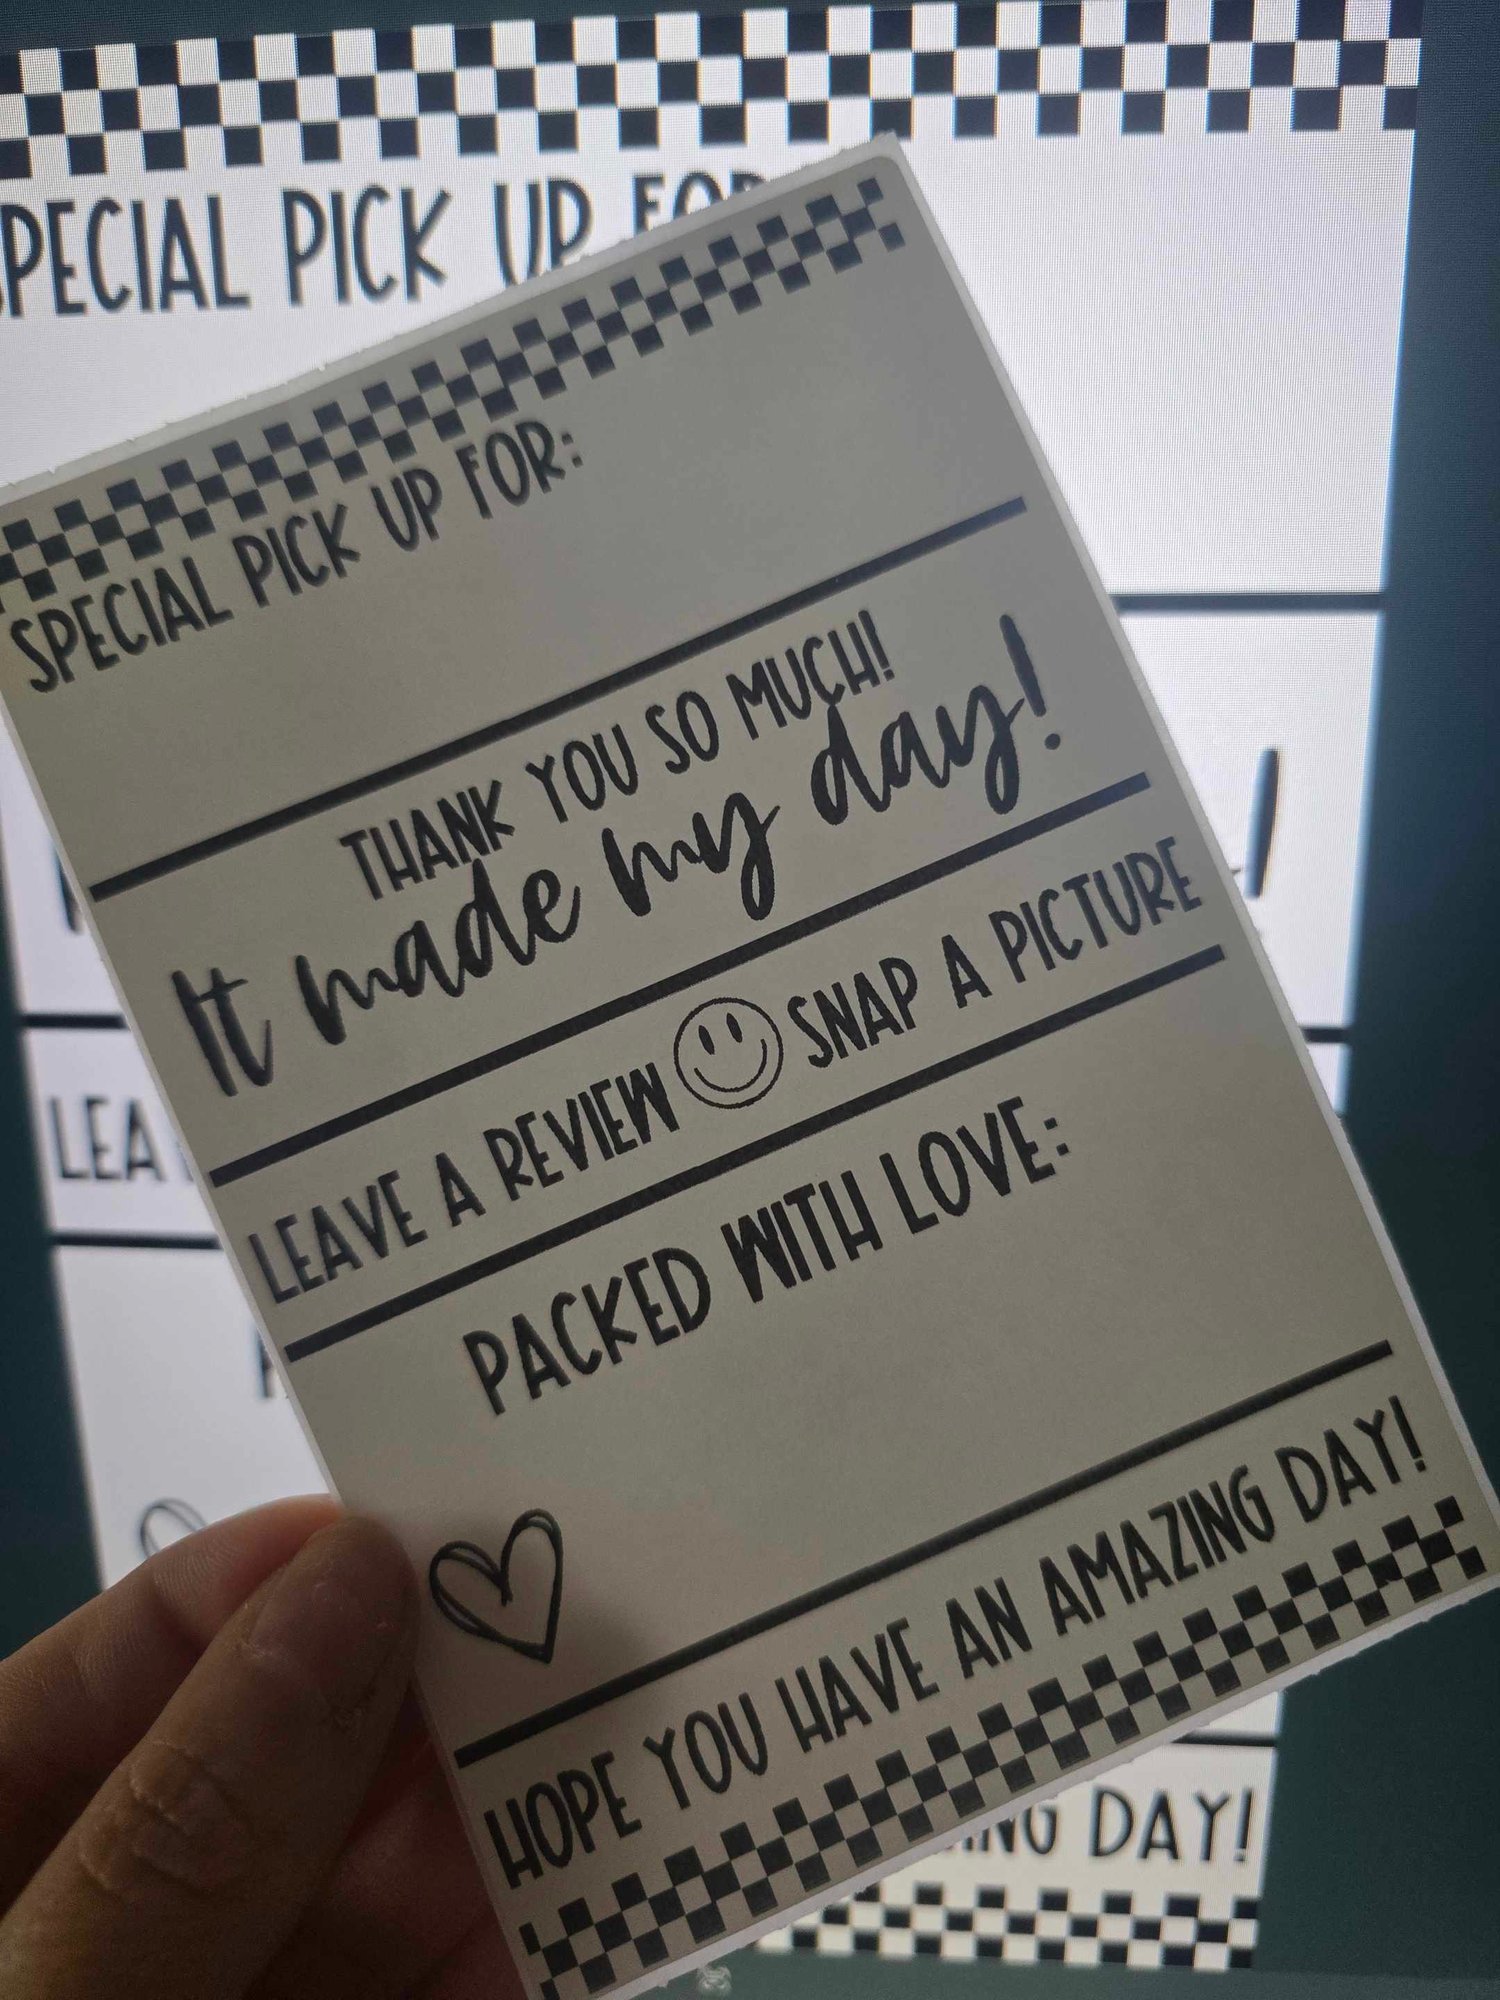 SPECIAL PICK UP FOR:
THANK YOU SO MUCH!
It made my day!
LEAVE A REVIEW SNAP A PICTURE
PACKED WITH LOVE:
HOPE YOU HAVE AN AMAZING DAY!
SPECIAL PICK UP FOR
DAY!